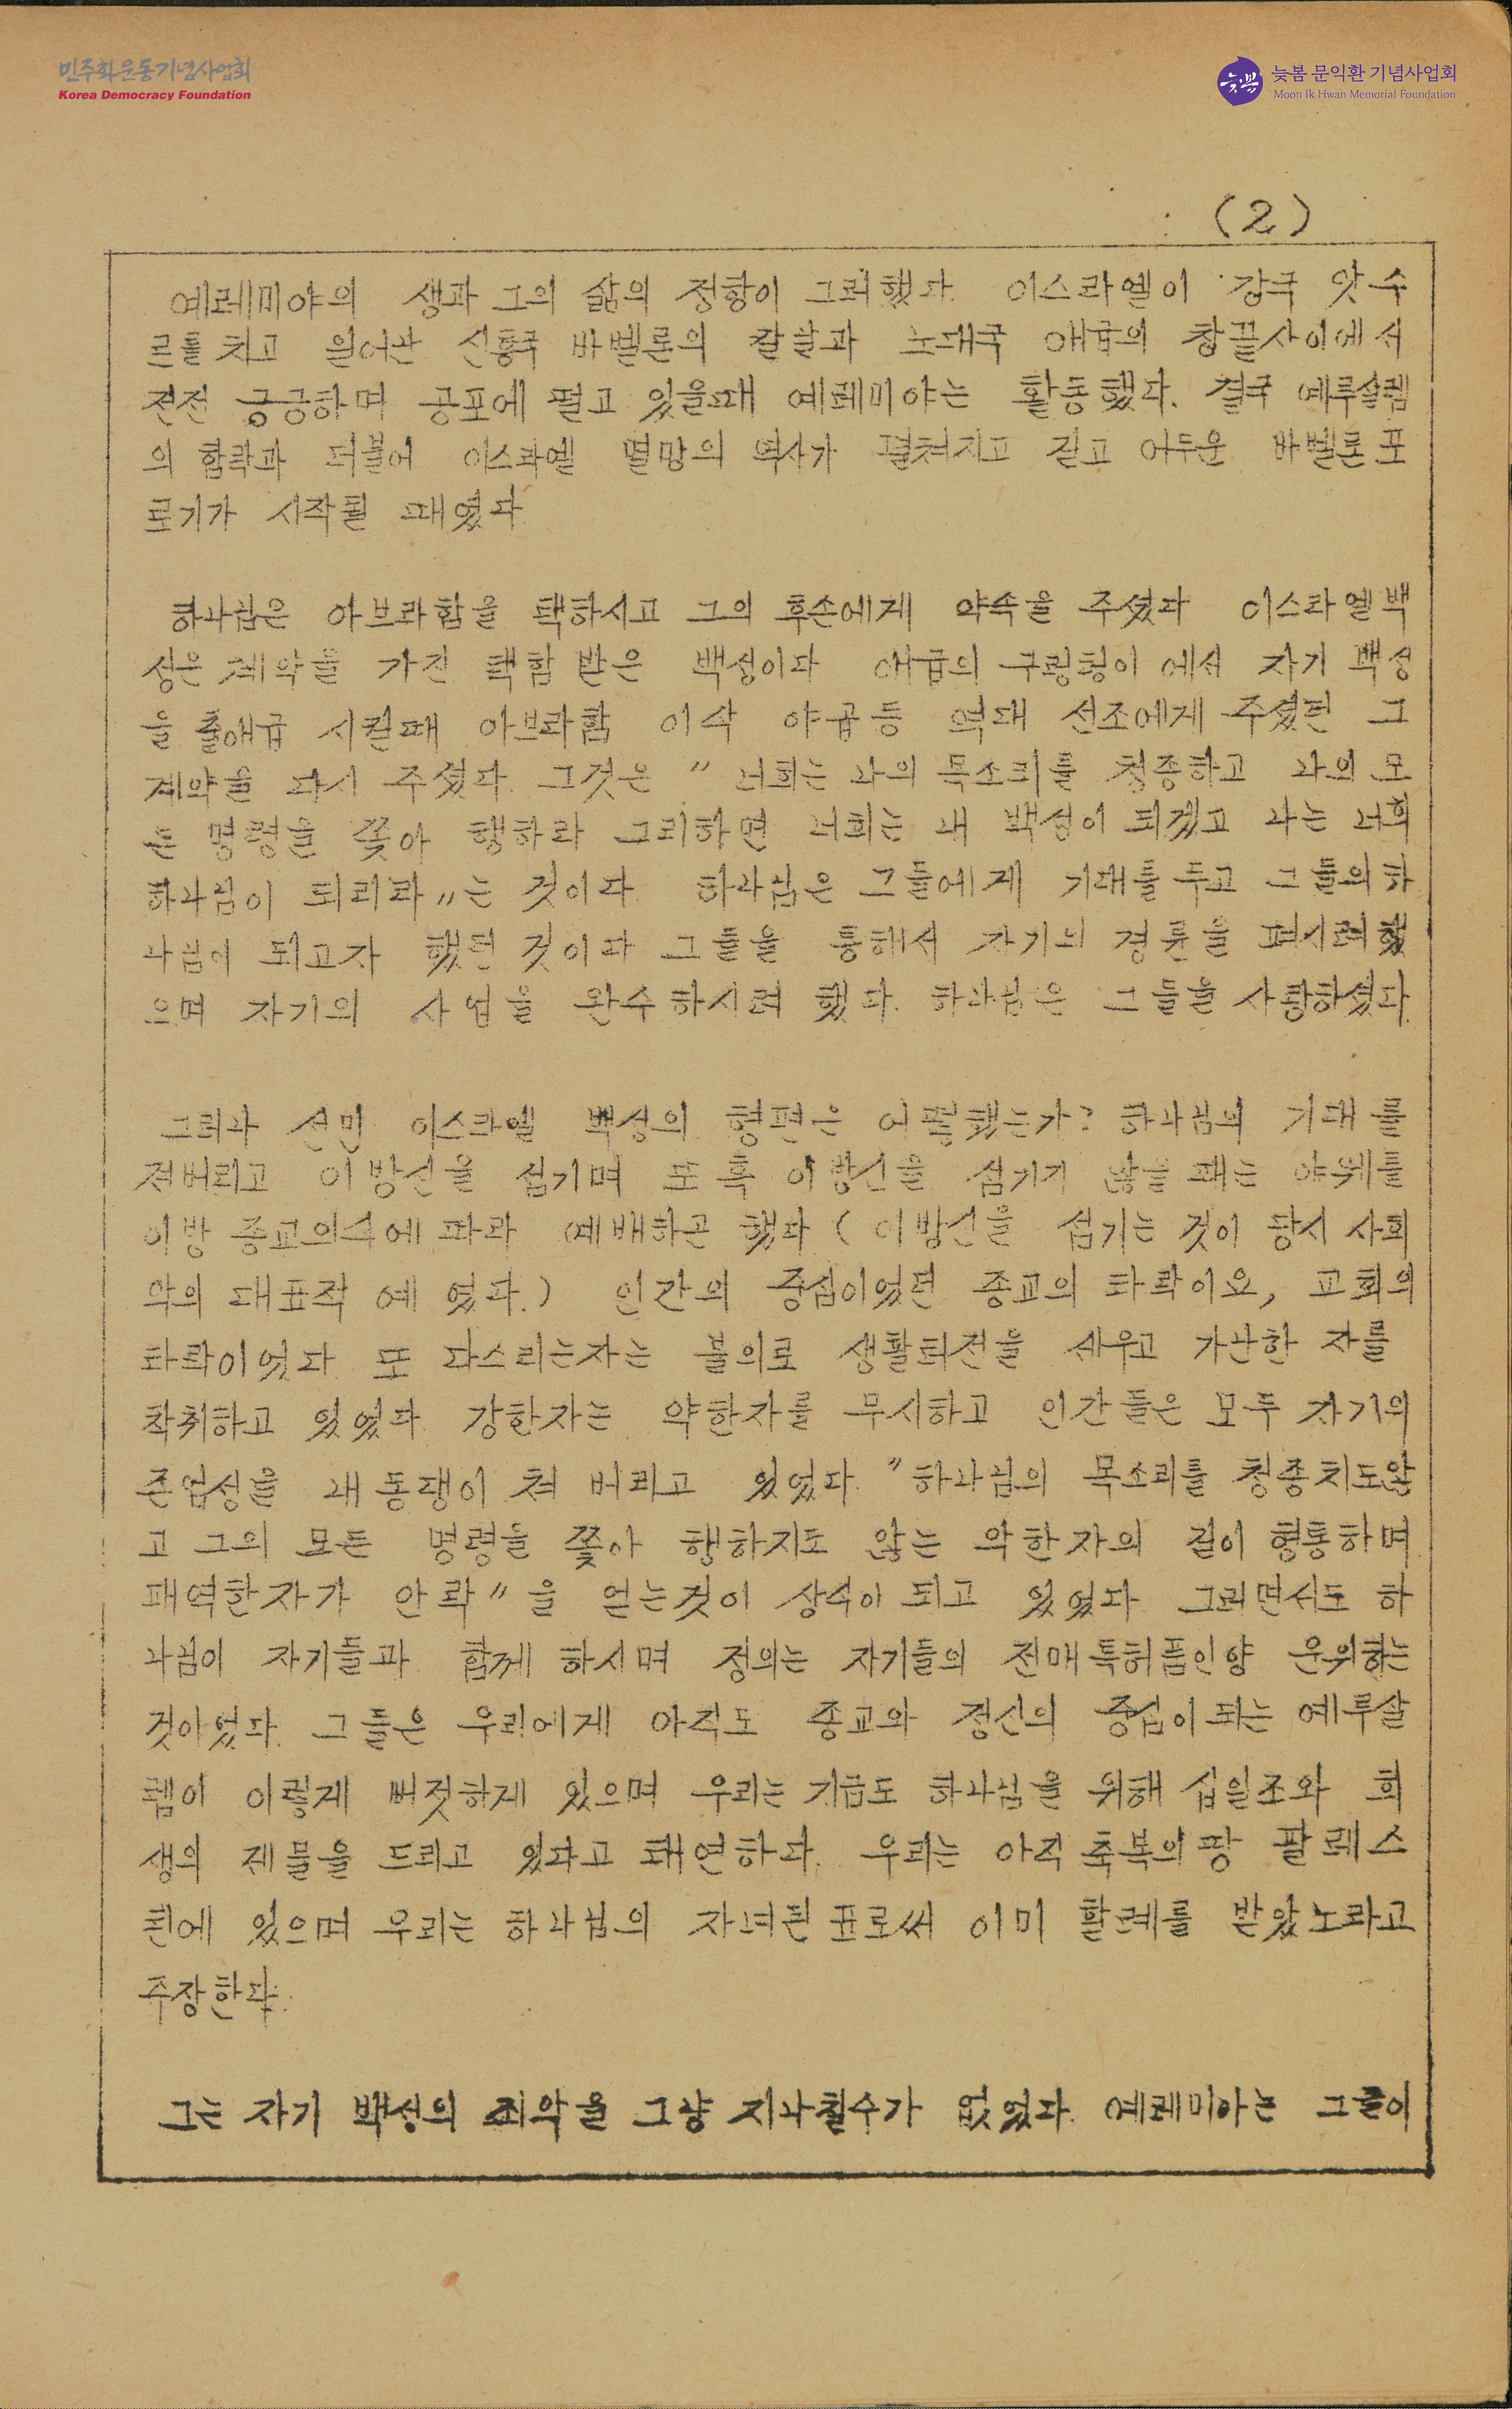 민주화운동기념사업회
Korea Democracy Foundation
늦봄
늦봄 문익환 기념사업회
Moon Ik Hwan Memorial Foundation
(2)
예레미야의 생과 그의 삶의 정황이 그러했다. 이스라엘이 강국 앗수
르를 치고 일어난 신흥국 바벨론의 칼날과 노대국 애급의 창끝사이에서
전전 긍긍하며 공포에 떨고 있을때 예레미야는 활동했다. 결국 예루살렘
의 함락과 더불어 이스라엘 멸망의 역사가 펼쳐지고 길고 어두운 바벨론 포
로기가 시작될 때였다
하나님은 아브라함을 택하시고 그의 후손에게 약속을 주셨다 이스라엘 백
성은 계약을 가진 택함 받은 백성이다 애급의 구렁텅이 에서 자기 백성
을 출애급 시킬때 아브라함 이삭 야곱 등 역대 선조에게 주셨던 그
계약을 다시 주셨다. 그것은 " 너희는 나의 목소리를 청종하고 나의 모
든 명령을 쫓아 행하라 그리하면 너희는 내 백성이 되겠고 나는 너희
하나님이 되리라"는 것이다 하나님은 그들에게 기대를 두고 그들의 하
나님이 되고자 했던 것이다 그들을 통해서 자기의 경륜을 펴시려 했
으며 자기의 사업을 완수하시려 했다. 하나님은 그들을 사랑하셨다.
그러나 선민 이스라엘 백성의 형편은 어떠했는가? 하나님의 기대를
저버리고 이방신을 섬기며 또 혹 이방신을 섬기지 않을 때는 야웨를
이방 종교의식에 따라 예배하곤 했다 ( 이방신을 섬기는 것이 당시 사회
악의 대표적 예 였다.) 인간의 중심이었던 종교의 타락이요, 교회의
타락이었다 또 다스리는자는 불의로 생활터전을 세우고 가난한 자를
착취하고 있었다 강한자는 약한자를 무시하고 인간들은 모두 자기의
존엄성을 내동댕이 쳐 버리고 있었다. "하나님의 목소리를 청종치도않
고 그의 모든 명령을 쫓아 행하지도 않는 악한 자의 길이 형통하며
패역한자가 안락"을 얻는것이 상식이 되고 있었다 그러면서도 하
나님이 자기들과 함께 하시며 정의는 자기들의 전매특허품인양 운위하는
것이었다. 그들은 우리에게 아직도 종교와 정신의 중심이 되는 예루살
렘이 이렇게 버젓하게 있으며 우리는 지금도 하나님을 위해 십일조와 희
생의 제물을 드리고 있다고 태연하다. 우리는 아직 축복의 땅 팔레스
틴에 있으며 우리는 하나님의 자녀된 표로써 이미 할례를 받았노라고
주장한다.
그는 자기 백성의 죄악을 그냥 지나칠수가 없었다. 예레미야는 그들이